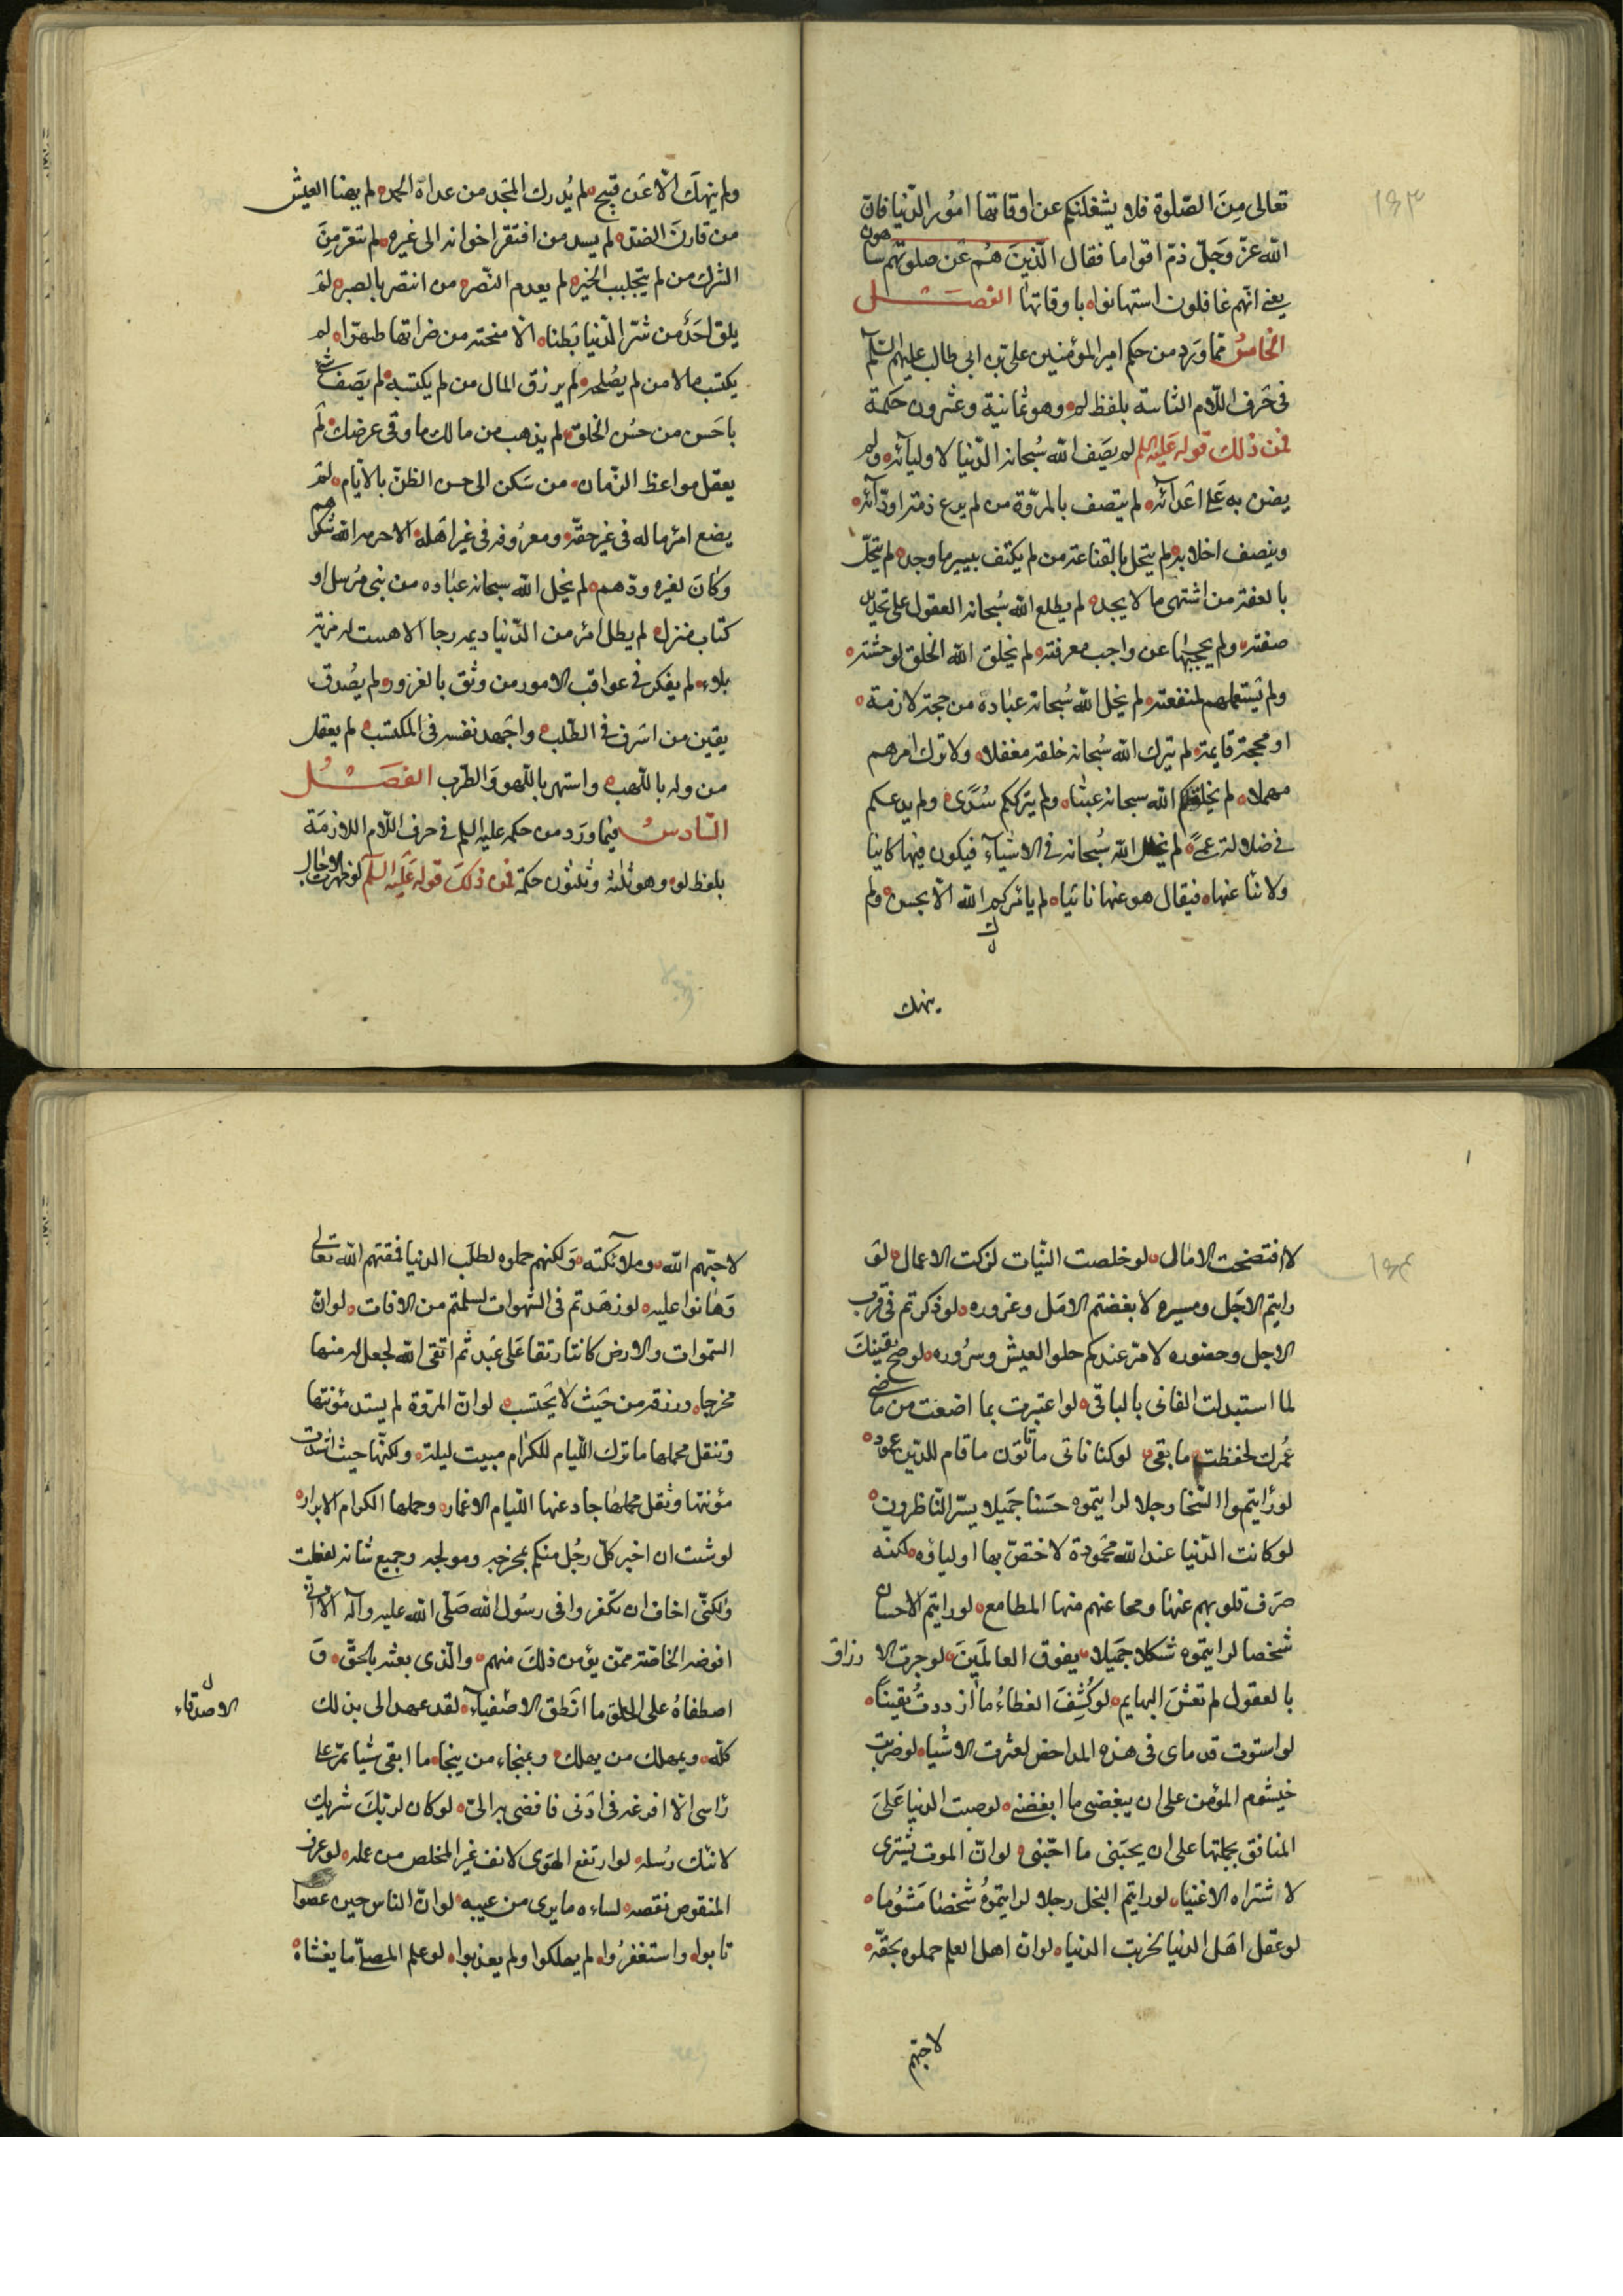 ١٤٣
تعالى مِنَ الصّلوة فلا يشغلنكم عن اوقاتها امُور الدّنيا فانّ
الله عزّ وَجَلّ ذمّ اقواما فقال الّذينَ هُم عَن صلوتهم ساهون
يعنى انّهم غافلون استهانوا باوقاتها الفصَـل
الخامسُ ممّا وَرَد من حكم امير المؤمنين على بن ابى طالب عليه السّلم
فى حَرف اللّام الثابتة بلفظ لم وهو ثمانية وعشرون حكمة
فمن ذلك قوله عَليه السلم لم يصَف الله سُبحانه الدّنيا لاوليآئه ولم
يضن بها عَلى اعَدآئه لم يتصف بالمرّوة من لم يرع ذمّة اودّآئه
وينصف اعدآئه لم يتحل بالقناعة من لم يكتف بيسير ما وجد لم يتحلّ
بالعفّة من اشتهى ما لا يجد لم يطلع الله سُبحانه العقول على تحديد
صفته ولم يحجبها عن واجب معرفته لم يخلق الله الخلق لوحشته
ولم يَستعملهم لمنفعته لم يخل الله سُبحانه عبادهَ من حجة لازمة
او محجة قايمة لم يترك الله سُبحانه خلقه مغفلا ولا ترك امرهم
مهملا لم يخلقكم الله سبحانه عبثا ولم يترككم سُدًى ولم يدعكم
فى ضلالة عمىً لم يحلل الله سُبحانه فى الاشيآء فيكون فيها كاينا
ولا نئا عنها فيقال هو عنها نائيا لم يامركم الله الّا بحسن ولم
ينهك
ولم ينهكَ الّا عَن قبيح لم يُدرك المجَد من عداه الحمد لم يهنا العيش
من قارنَ الضدّ لم يسد من افتقر اخوانه الى غيره لم يتعرّ مِنَ
الشرّ من لم يتجلبب الخير لم يعدم النّصر من انتصر بالصبر لمَ
يلق احَدٌ من سَرّ الدّنيا بَطنا الّا منحته من ضرائها ظهرا لم
يكتسب مالا من لم يصُلحه لم يرزق المال من لم يكتسبه لم يَصَف شئ
باحَسن من حسُن الخلق لم يذهب من مالك ما وقى عرضك لمَ
يعقل مواعظ الزّمان من سَكن الى حسن الظنّ بالايّام لمَ
يضع امرؤ ماله فى غير حقّه ومعرُوفه فى غير اهَله الا حرمه الله شكرهم
وكانَ لغيره ودّهم لم يخل الله سبحانه عبَاده من نبى مُرسل او
كتاب منزل لم يطل امرء من الدّنيا ديمه رخا الا هتنت له مزنة
بلاء لم يفكر فى عواقب الامور من وثق بالغرور ولم يصُدق
يقين من اسَرف فى الطّلب واجَهد نفسه فى المكتسب لم يعقل
من وله باللّعب واستهر باللّهو وَالطّرب الفَصَـل
السّادسُ فيما ورَد من حكمه عليه السلم فى حرف اللّام اللازمَة
بلفظ لو وهو ثلثة وثلثون حكمة فمن ذلكَ قوله عَليه السلم لو ظهرت الاجال
١٤٤
لافتضحت الامال لو خلصت النّيات لزكت الاعمال لو
رايتم الاجَل ومسيره لابغضتم الامَل وغروره لو فكرتم فى قرب
الاجل وحضوره لامرّ عندكم حلو العيش وسرُوره لو صحّ يقينكَ
لما استبدلت الفانى بالباقى لو اعتبرت بما اضعت من ماضى
عُمرك لحفظت ما بقى لو كنا ناتى ما تاتون ما قام للدّين عمود
لو رَايتموا السّخا رجلا لرايتموه حَسَنا جَميلا يسّر النّاظرون
لو كانت الدّنيا عند الله محَمودة لاختصّ بها اولياؤه لكنه
صَرف قلوبهم عنها ومحا عنهم منها المطامع لو رايتم الاحسان
شخصا لرايتموه شكلا جَميلا يفوق العالمَينَ لو جرت الارزاق
بالعقول لم تعشَ البهايم لو كُشِفَ الغطاءُ ما ازددتُ يقيناً
لو استوت قدماى فى هذه المداحض لغيرت الاشيا لو ضربت
خيشوم المؤمن على ان يبغضنى ما ابغضنى لو صبت الدنيا عَلَى
المنافق بجملتها على ان يحبّنى ما احبّنى لو انّ الموت يَشترى
لاشتراه الاغنيا لو رايتم البخل رجلا لرايتموهُ شخصًا مَشؤما
لو عَقل اهَل الدنيا لخربت الدنيا لو انّ اهل العلم حملوه بحقّه
لاحبّهم
لاحبّهم الله وملائكته وَلكنهم حملوه لطلَب الدنيا فمقتهم الله تعالى
وَهانوا عليه لو زهَدتم فى الشهوات لسلمتم من الافات لو انّ
السّموات والارض كانتا رتقا عَلى عَبد ثم اتقى الله لجعل له منها
مخرجا ورزقه من حَيث لا يحَتسب لو انّ المرّوة لم يشتد مؤنتها
وتثقل محملها ما ترك اللّيام للكرام مبيت ليلة ولكنّها حيث اشتدّت
مؤنتها وثقل محملها حاد عنها اللّيام الاغمار وحملها الكرام الابرار
لو شئت ان اخبر كلّ رجُل منكم بمخرجه ومولجه وجميع شانه لفعلت
ولكنّى اخاف ان تكفروا فى برسُول الله صَلّى الله عليه وآله الا انّى
افوضه الخاصّة ممّن يؤمن ذلكَ منهم والّذى بعثه بالحَقّ وَ
اصطفاهُ على الخلق ما انَطق الا صدقا لقد عهد الى بذلك
كلّه وبمهلك من يهلك وبمنجاء من ينجا ما ابقى شيا يمرّ على
رَاسى الّا افرغه فى اذنى فافضى به الىّ لو كان لربّكَ شريك
لاتتك رُسله لو ارتفع الهوَى لانف غير المخلص من عمله لو عرف
المنقوص نقصه لساءه ما يرى من عيبه لو انّ الناس حين عصوا
تابوا واستغفرُوا لم يهلكوا ولم يعذبوا لو علم المصلّى ما يغشاهُ